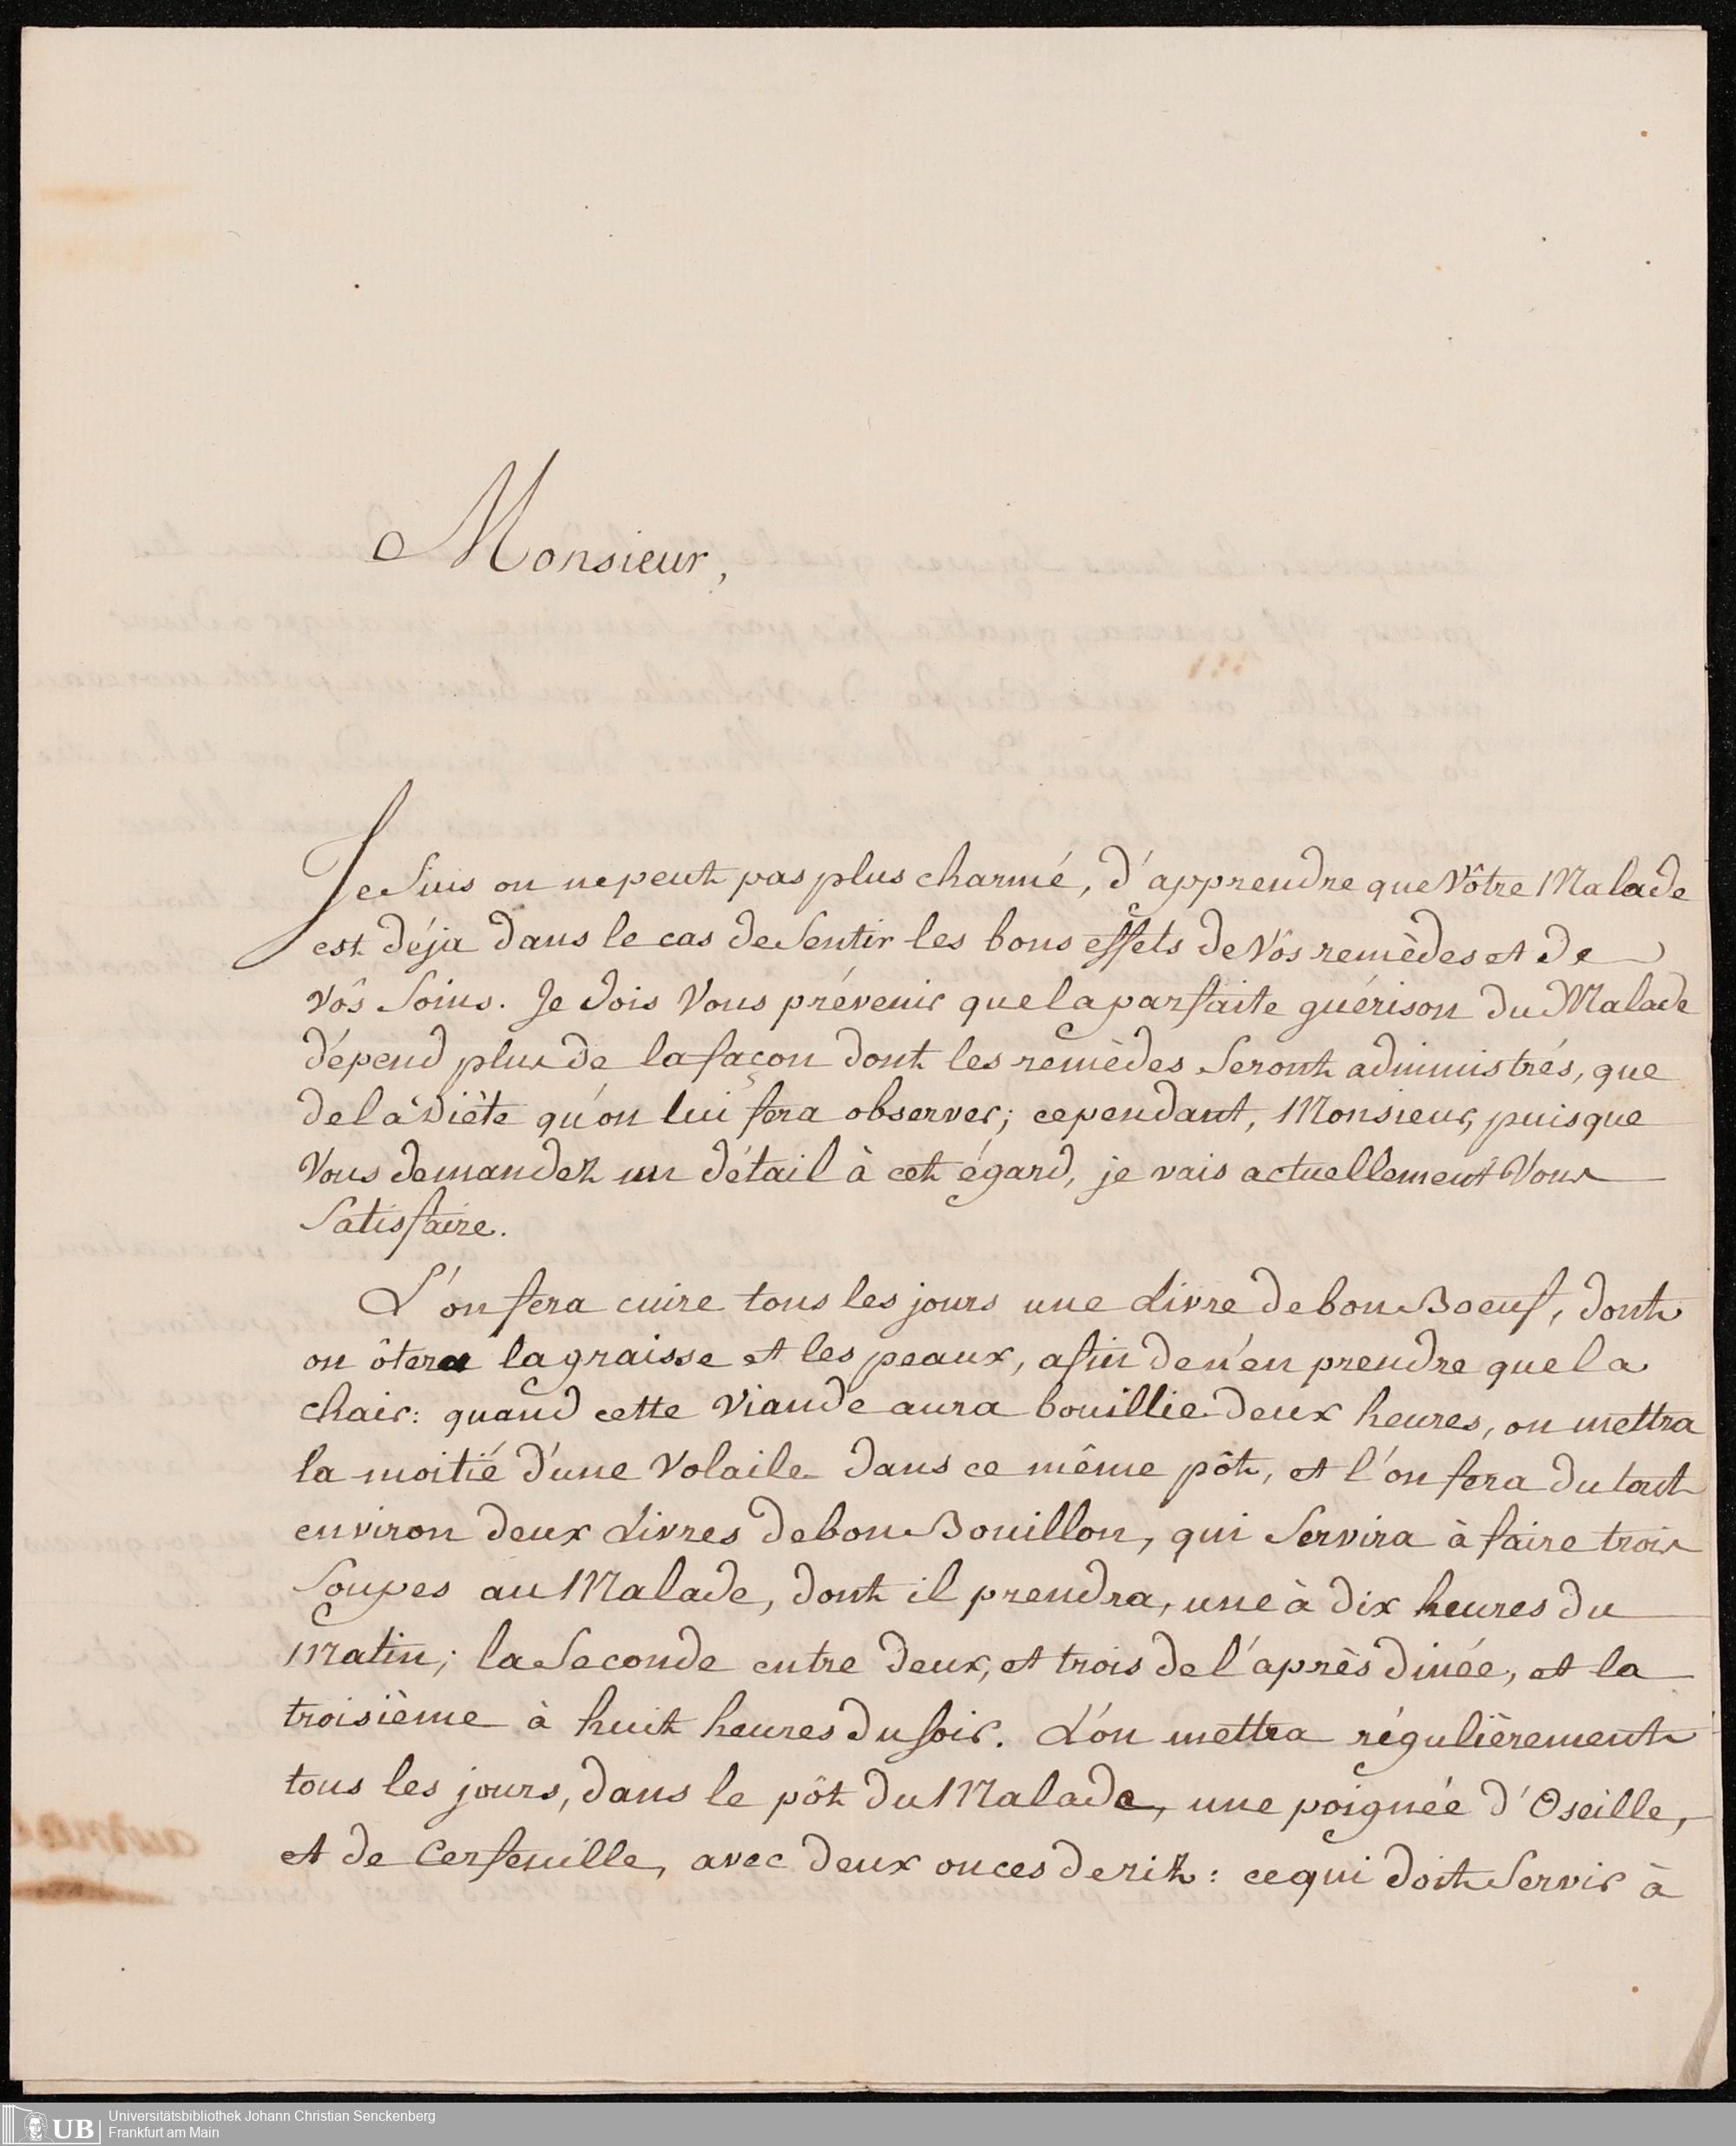 Monsieur,
Je suis on ne peut pas plus charmé, d'apprendre que Vôtre Malade
est déja dans le cas de sentir les bons effets de Vôs remèdes et de
Vôs soins. Je dois Vous prévenir que la parfaite guérison du Malade
dépend plus de la façon dont les remèdes seront administrés, que
de la diète qu'on lui fera observer; cependant, Monsieur, puisque
Vous demandez un détail à cet égard, je vais actuellement Vous
satisfaire.
L'on fera cuire tous les jours une Livre de bon Boeuf, dont
on ôtera la graisse et les peaux, afin de n'en prendre que la
chair: quand cette Viande aura bouillie deux heures, on mettra
la moitié d'une Volaile dans ce même pôt, et l'on fera du tout
environ deux Livres de bon Bouillon, qui servira à faire trois
soupes au Malade, dont il prendra, une à dix heures du
Matin; la seconde entre deux, et trois de l'après dinée, et la
troisième à huit heures du soir. L'on mettra régulièrement
tous les jours, dans le pôt du Malade, une poignée d'Oseille,
et de Cerfeuille, avec deux onces de riz: ce qui doit servir à
UB
Universitätsbibliothek Johann Christian Senckenberg
Frankfurt am Main